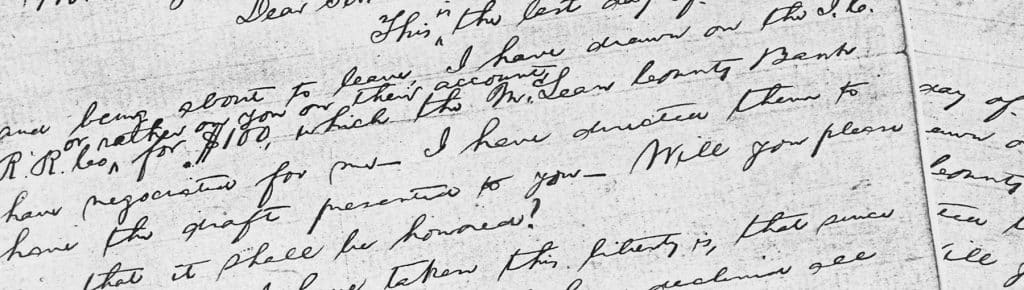 Dear Sir
This is the last day of
and being about to leave, I have drawn on the I.C.
or rather on you on their account,
R.R. Co, for $100, which the McLean County Bank
have negociated for me— I have directed them to
have the draft presented to you— Will you please
that it shall be honored?
taken this liberty is, that since
declined all
day of
County